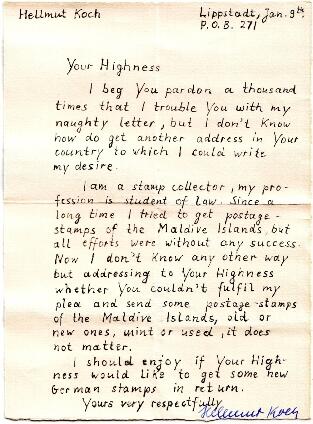 Hellmut Koch Lippstadt, Jan. 9th.
P.O.B. 271
Your Highness
I beg You pardon a thousand
times that I trouble You with my
naughty letter, but I don't know
how do get another address in Your
country to which I could write
my desire.
I am a stamp collector, my pro-
fession is student of law. Since a
long time I tried to get postage-
stamps of the Maldive Islands, but
all efforts were without any success.
Now I don't know any other way
but addressing to Your Highness
whether You couldn't fulfil my
plea and send some postage-stamps
of the Maldive Islands, old or
new ones, mint or used, it does
not matter.
I should enjoy if Your High-
ness would like to get some new
German stamps in return.
Yours very respectfully
Hellmut Koch